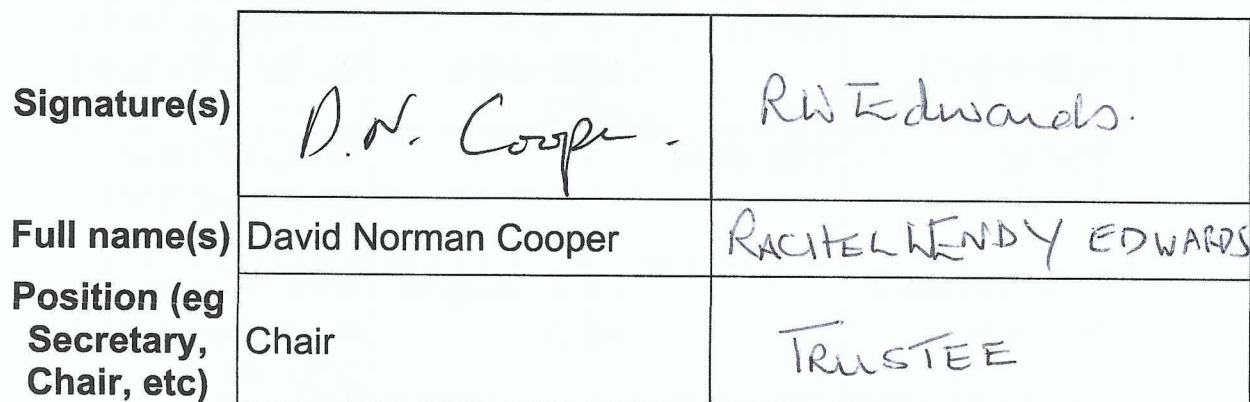 Signature(s) D. N. Cooper. RW Edwards.
Full name(s) David Norman Cooper RACHEL WENDY EDWARDS
Position (eg
Secretary, Chair TRUSTEE
Chair, etc)